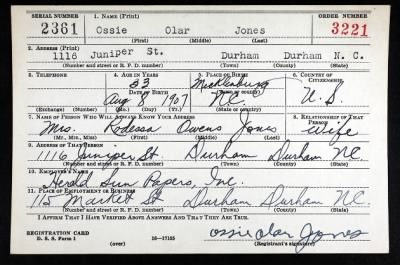 SERIAL NUMBER 1. NAME (Print) ORDER NUMBER
2361 Ossie Olar Jones 3221
(First) (Middle) (Last)
2. ADDRESS (Print)
1116 Juniper St. Durham Durham N. C.
(Number and street or R. F. D. number) (Town) (County) (State)
3. TELEPHONE 4. AGE IN YEARS 5. PLACE OF BIRTH 6. COUNTRY OF CITIZENSHIP
33 Mecklenburg
DATE OF BIRTH (Town or county)
Aug 9 1907 NC. U. S.
(Exchange) (Number) (Mo.) (Day) (Yr.) (State or country)
7. NAME OF PERSON WHO WILL ALWAYS KNOW YOUR ADDRESS 8. RELATIONSHIP OF THAT PERSON
Mrs. Rodessa Owens Jones Wife
(Mr., Mrs., Miss) (First) (Middle) (Last)
9. ADDRESS OF THAT PERSON
1116 Juniper St Durham Durham NC
(Number and street or R. F. D. number) (Town) (County) (State)
10. EMPLOYER'S NAME
Herald Sun Papers, Inc.
11. PLACE OF EMPLOYMENT OR BUSINESS
115 Market St Durham Durham NC.
(Number and street or R. F. D. number) (Town) (County) (State)
I AFFIRM THAT I HAVE VERIFIED ABOVE ANSWERS AND THAT THEY ARE TRUE.
REGISTRATION CARD
D. S. S. Form 1 (over) 16-17105 Ossie Olar Jones
(Registrant's signature)